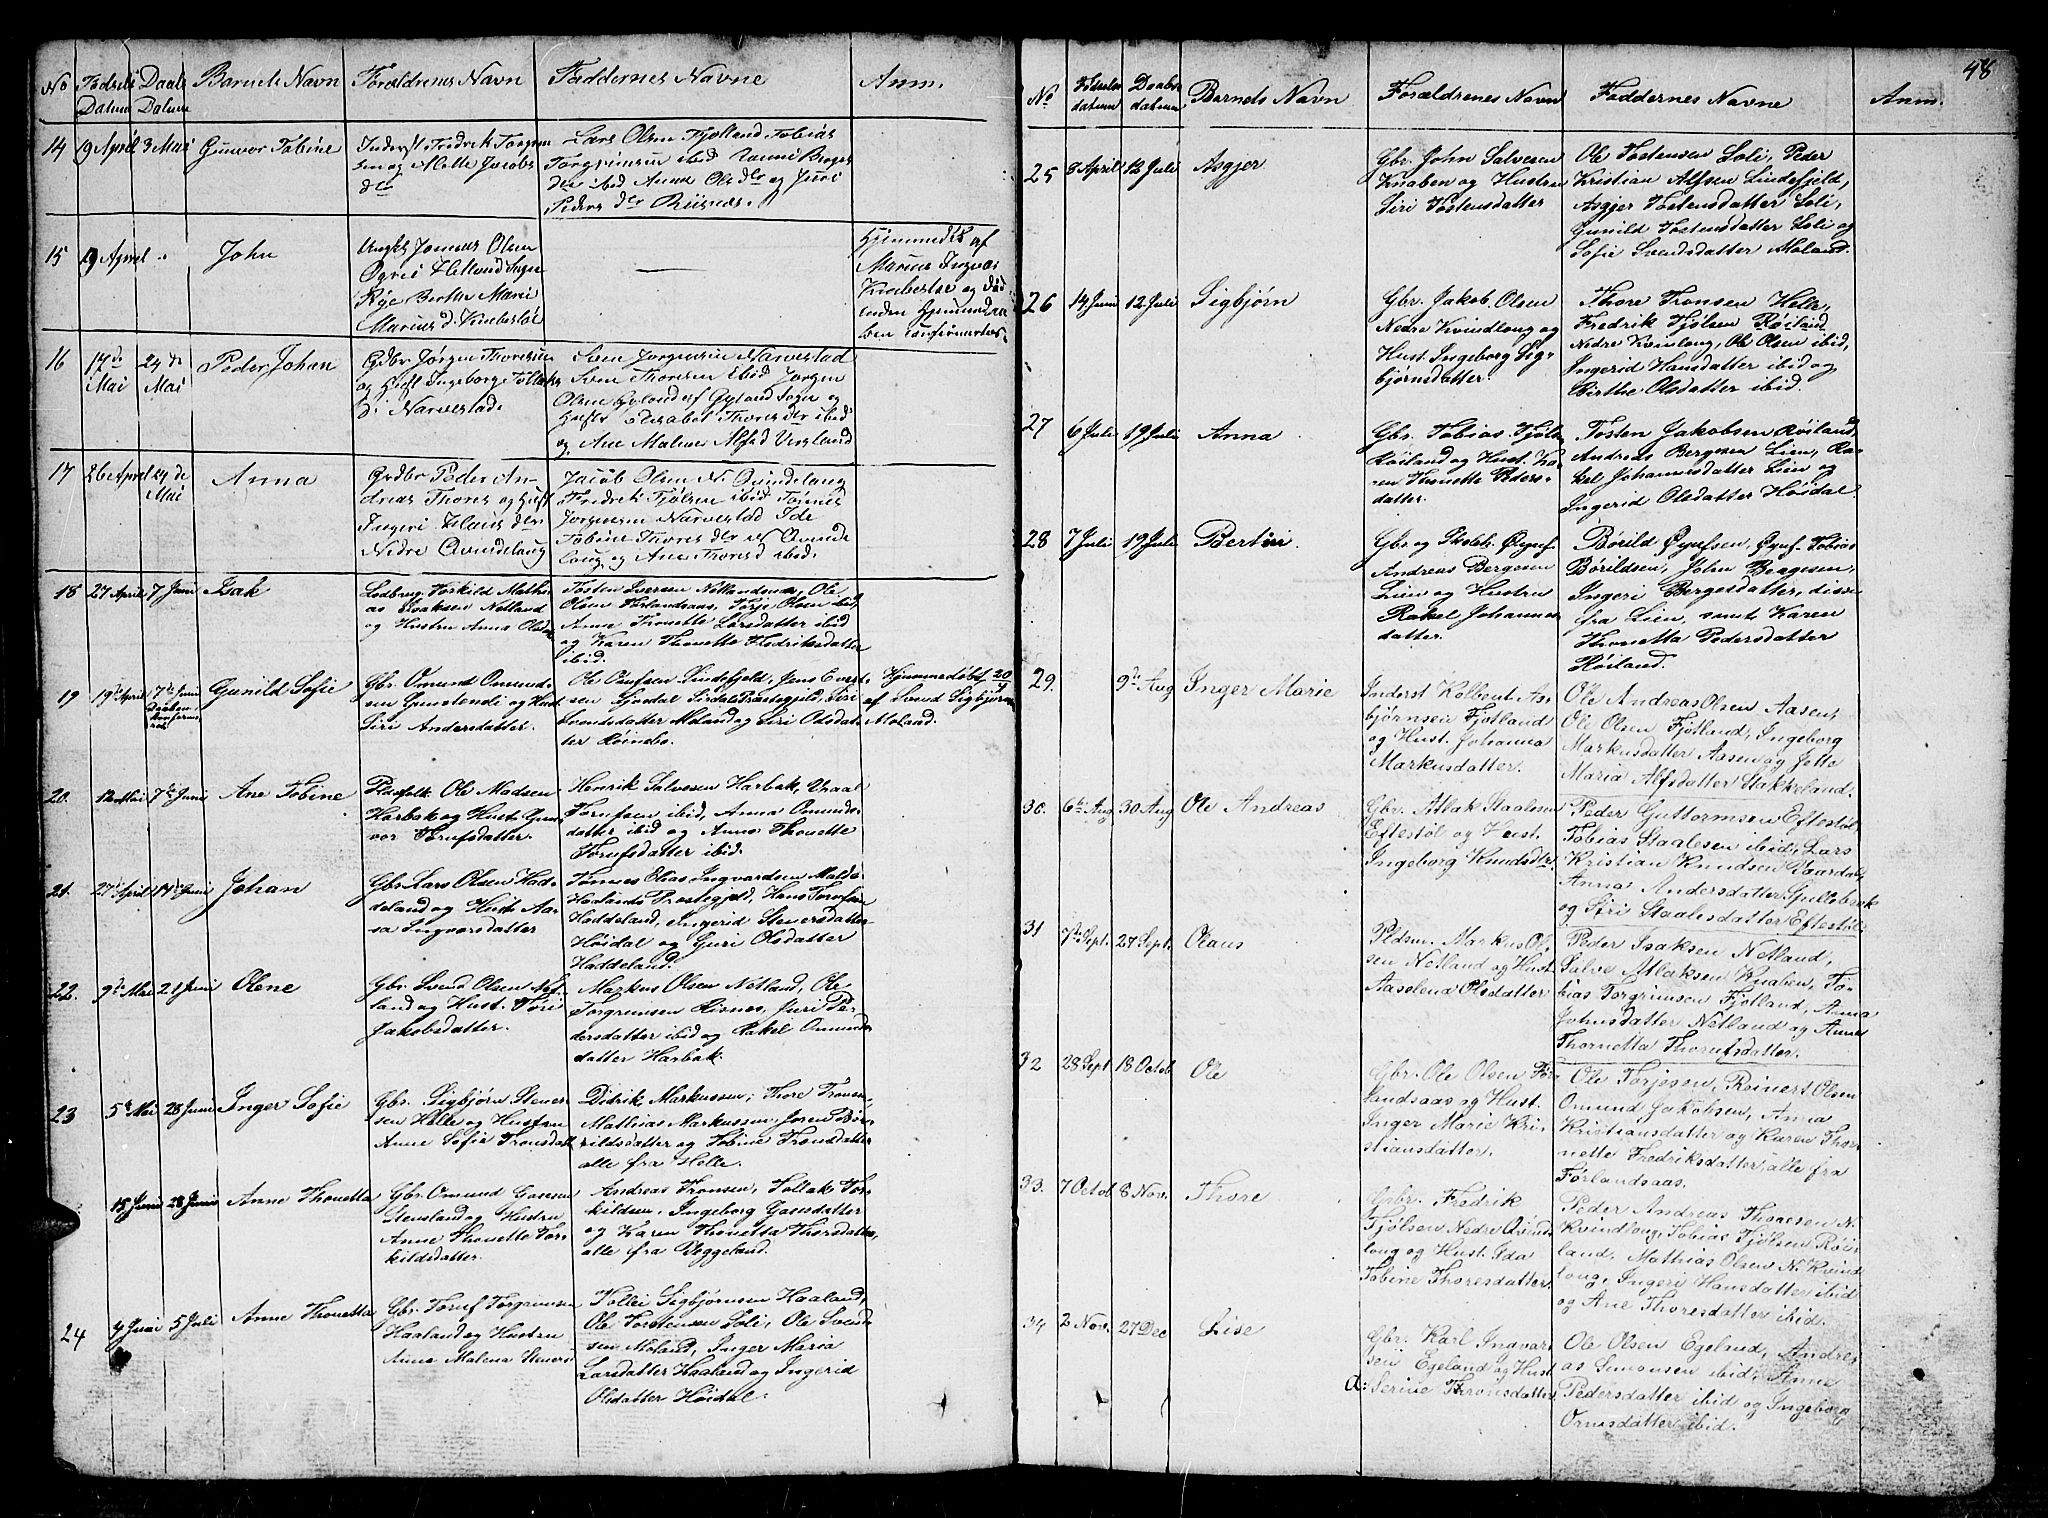 No Fødsels Datum Daabs Datum Barnets Navn Forældrenes Navn Faddernes Navne Anm.
14 9 April 3 Mai Gunvor Tobine
Inderst Fredrik Torgrim
sen og Mette Jacobs
dtr
Lars Olsen Fjotland Tobias
Torgrimsen ibid
dtr ibid Anne Ols dtr og Juri
Peders dtr Risnes.
15 19 April " John
Ungk. Jonnas Olsen
Helland Sogn
Berthe Marie
Marius d. Knebestøl
—
Hjemmedøbt af
Marius
Knebestøl og Død
inden Hjemmedaa
ben confirmertes.
16 17de Mai 24 de Mai Peder Johan
Grdbr Jørgen Thoresen
og Hust Ingeborg Tollaks
d. Narvestad.
Sven Jørgensen Narvestad
Sven Thoresen ibid Jørgen
Olsen Gyland af Gyland Sogn og
Hust Elisabet Thores dtr ibid
og Ane Malene Alfsd
17 26 April 24 de Mai Anna
Grdbr Peder An-
dreas Thores og Hust
Ingeri Hans dtr
Nedre Qvindelaug
Jacob Olsen N. Qvindelaug
Fredrik Fjølsen ibid Tønnes
Jørgensen Narvestad Ide
Tobine Thores dtr N. Qvinde
laug og Ane Thoresd ibid.
18 27 April 7 Juni Isak
Lodbrug. Torkild Mathi
as Isaksen Netland
og Hustru Anna Olsdtr
Tosten Iversen Netlandsnes, Ole
Olsen Førlandsaas, Torje Olsen ibid,
Anne Thonette Larsdatter ibid
og Karen Thonette Fredriksdatter
ibid.
19 19de April 7de Juni Gunild Sofie
Daaben
konfirme-
ret
Gbr. Omund Omund-
sen Gunstendi og Hust
Siri Andersdatter.
Ole Omfsen Lindefjeld, Jens Evert
sen Sirdals Præstegjeld, Siri
Svendsdatter Moland og Siri Olsdat-
ter Roinebo.
Hjemmedøbt 20/4
af Svend Sigbjørn
Moland.
20. 12 Mai 7de Juni Ane Tobine
Plasfolk Ole Madsen
Harbak og Hust. Gun
vor Torufsdatter.
Henrik Salvesen Harbak,
Torufsen ibid, Anna Omunds
datter ibid og Anne Thonette
Torufsdatter ibid.
21. 27de April 14de Juni Johan
Gbr. Lars Olsen Had-
deland og Hust. Aa-
sa Ingvarsdatter
Tønnes Elias Ingvardsen
Haalands Prestegjeld, Hans Torufsen
Haddeland, Ingerid Stenersdatter
Høidal og Guri Olsdatter
Haddeland.
22. 9de Mai 21 Juni Olene
Gbr. Svend Olsen Net-
land og Hust. Siri
Jakobsdatter.
Markus Olsen Netland, Ole
Torgrimsen Risnes, Juri Pe-
dersdatter ibid og Rakel Omunds
datter Harbak.
23 5te Mai 28 Juni Inger Sofie
Gbr. Sigbjørn Stener-
sen Helle og Hustru
Anne Sofie Tronsdatt
Didrik Markussen, Thore Tronsen,
Mathias Markussen, Joren Bø-
rildsdatter og Tobine Tronsdatter
alle fra Helle.
15 Juni 28 Juni Anne Thonetta
Gbr. Omund Gaasesen
Stensland og Hustru
Anne Thonette Tor-
kildsdatter.
Andreas Tronsen, Tollak Tor-
kildsen, Ingeborg Gaasedatter
og Karen Thonetta Thorsdatter,
alle fra Veggeland.
24 4 Juni 5 Juli Anne Thonetta
Gbr. Toruf Torgrimsen
Haaland og Hustru
Anna Malena Steners
Tollei Sigbjørnsen Haaland,
Ole Torstensen Soli, Ole Svend-
sen Moland, Inger Maria
Larsdatter Haaland og Ingerid
Olsdatter Høidal.
48
No Fødsels datum Daabs datum Barnets Navn Forældrenes Navn Faddernes Navne Anm.
25 3 April 12 Juli Asgjer
Gbr. John Salvesen
Knaben og Hustru
Siri Tostensdatter
Ole Tostensen Soli, Peder
Kristian Alfsen Lindefjeld,
Asgjer Tostensdatter Soli,
Gunild Tostensdatter Soli og
Sofie Svendsdatter Moland.
26 14 Juni 12 Juli Sigbjørn
Gbr. Jakob Olsen
Nedre Kvindlong og
Hust. Ingeborg Sig-
bjørnsdatter.
Thore Tronsen Helle,
Fredrik Fjølsen Røiland
Nedre Kvinlong, Ole Olsen ibid,
Ingerid Hansdatter ibid og
Birthe Olsdatter ibid.
27 6 Juli 19 Juli Anna
Gbr. Tobias Fjøls-
Røiland og Hust. Ka-
ren Thonette Peders-
datter.
Tosten Jakobsen Røiland,
Andreas Bergesen Lien, Ra-
kel Johannesdatter Lien og
Ingerid Olsdatter Høidal
28 7 Juli 19 Juli Bertin.
Gbr og Skoleh.
Andreas Bergesen
Lien og Hustru
Rakel Johannes
datter.
Børild Øyufsen, Øyuf Tobias
Børildsen, John Bergesen,
Ingeri Bergesdatter, disse
fra Lien, samt Karen
Thonetta Pedersdatter
Røiland.
29. 9de Aug Inger Marie
Inderst Kolbent As-
bjørnsen Fjotland
og Hust. Johanna
Markusdatter.
Ole Andreas Olsen Aasen,
Ole Olsen Fjotland, Ingeborg
Markusdatter Aasen og Jette
Maria Alfsdatter Stakkeland.
30. 6te Aug 30 Aug Ole Andreas
Gbr. Atlak Staalesen
Eftestøl og Hust.
Ingeborg Knudsdtr.
Peder Guttormsen Eftestøl,
Tobias Staalesen ibid, Lars
Kristian Knudsen
Anna Andersdatter Gullebrek
og Siri Staalesdatter Eftestøl.
31 7de Sept. 27 Sept. Olaus
Pldsm. Markus Ol-
sen Netland og Hust.
Aaselena Olsdatter
Peder Isaksen Netland,
Salve Atlaksen Knaben, To-
bias Torgrimsen Fjotland, Anna
Johnsdatter Netland og Anne
Thornetta Thorufsdatter.
32 28 Sept 18 Octob Ole
Gbr. Ole Olsen Før-
landsaas og Hust.
Inger Marie Kri-
stiansdatter.
Ole Torjesen, Reinert Olsen
Omund Jakobsen, Anna
Kristiansdatter og Karen Thor-
nette Fredriksdatter, alle fra
Førlandsaas.
33. 7 Octob 8 Nov. Thore
Gbr. Fredrik
Fjølsen Nedre Qvind-
long og Hust. Ida
Tobine Thoresdatter.
Peder Andreas Thoresen N.
Kvindlong, Tobias Fjølsen Røi-
land, Mathias Olsen N. Kvind
long, Ingeri Hansdatter ibid
og Ane Thoresdatter ibid.
34 2 Nov. 27 Dec Lise
Gbr. Karl Ingvar-
sen Egeland og Hust
a: Serine Thronsdatter
Ole Olsen Egelnd, Andre
as Simonsen ibid, Anne
Pedersdatter ibid og Ingeborg
Omisdatter ibid.